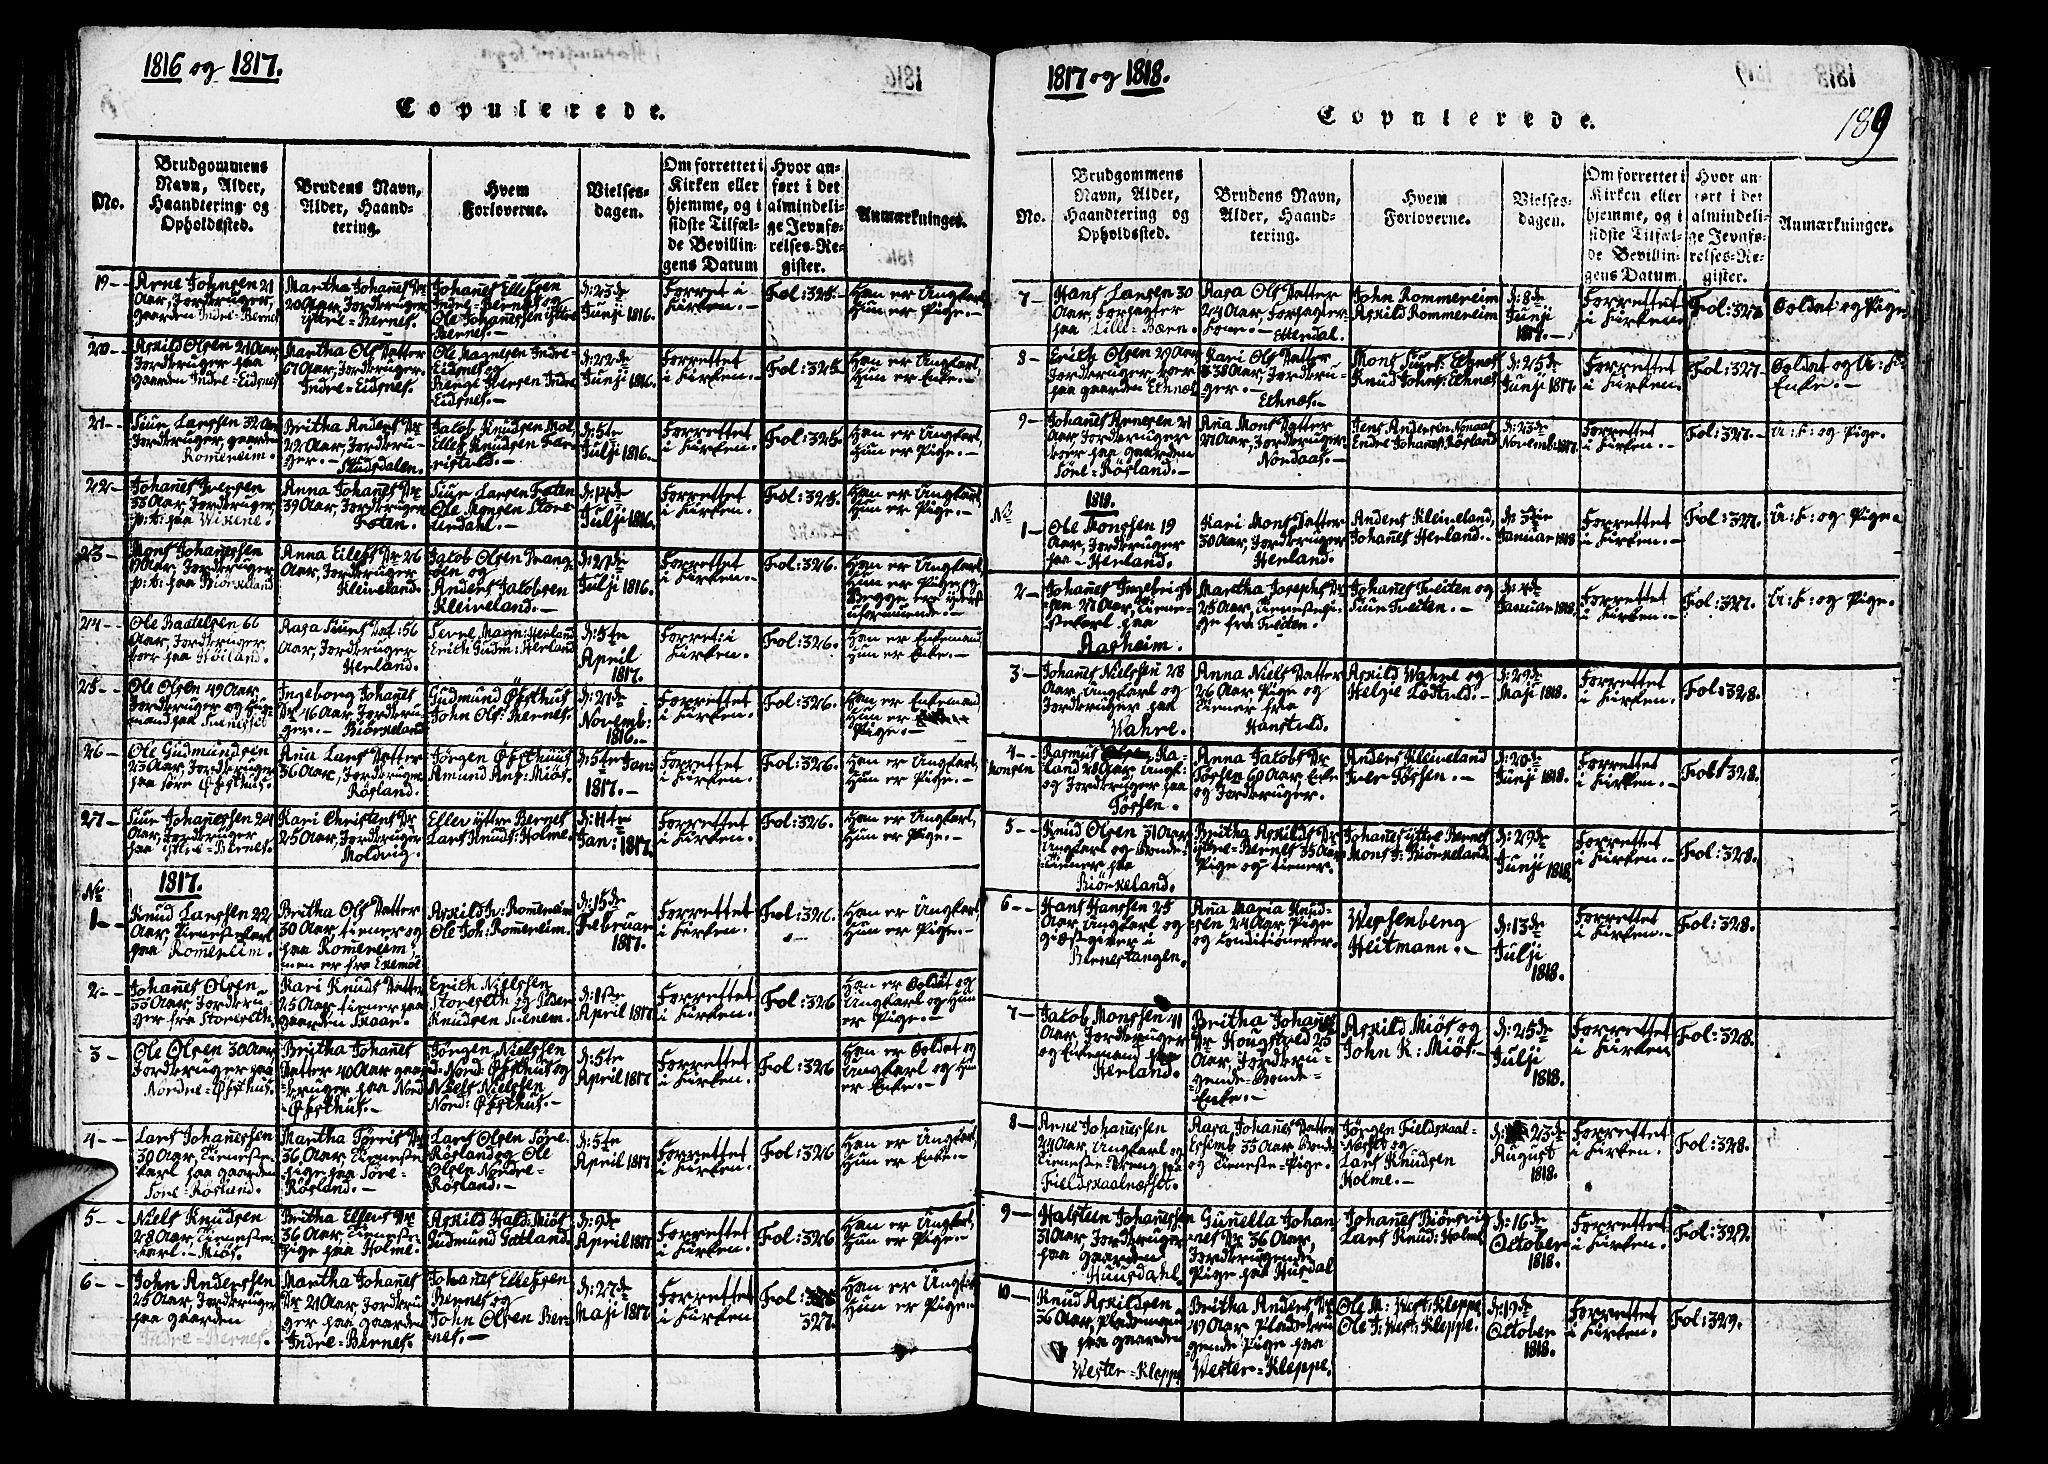 1816 og 1817.
Copulerede.
No.
Brudgommens
Navn, Alder,
Haandtering og
Opholdssted.
Brudens Navn,
Alder, Haand-
tering.
Hvem
Forloverne.
Vielses-
dagen.
Om forrettet i
Kirken eller
hjemme, og i
sidste Tilfæl-
de Bevillin-
gens Datum
Hvor an-
ført i det
almindeli-
ge Jevnfø-
relses-Re-
gister.
Anmærkninger.
19 -
Arne Johnsen 21
Aar, Jordbruger,
gaarden Indre-Bernes
Martha Johanes Dr
20 Aar, Jordbruger
yttre-Bernes.
Johanes Ellefsen
Indre-Bernes og
Ole Johanessen yttre
Bernes.
d: 23de
Junji 1816.
Forret i
Kirken.
Fol: 325.
Han er Ungkarl,
Hun er Pige.
20 -
Askild Olsen 21 Aar,
Jordbruger paa
gaarden Indre-Eidsnes
Martha Ols Datter
67 Aar, Jordbruger.
Indre-Eidsnes.
Ole Magnesen Indre-
Eidsnes og
Iversen Indre
Eidsnes.
d: 22de
Junji 1816.
Forrettet
i Kirken.
Fol: 325
Han er Ungkarl,
Hun er Enke.
21 -
Siur Larssen 32 Aar
Jordbruger, gaarden
Romereim.
Britha Anders Dr
22 Aar, Jordbru-
ger.
Jakob Knudsen
Ellef Knudsen
d: 5te
Julji 1816.
Forrettet
i Kirken.
Fol: 325.
Han er Ungkarl,
Hun er Pige.
22 -
Johanes Iversen
33 Aar, Jordbruger
p: t: paa Wikine.
Anna Johanes Dr
39 Aar, Jordbruger
Foten.
Siur Larsen Foten
Ole Monsen Store
Urdahl.
d: 14de
Julji 1816.
Forrettet
i Kirken.
Fol: 325.
Han er Ungkarl,
Hun er Pige.
23 -
Mons Johanessen
Aar, Jordbruger
p: t: paa Biörkeland
Anna Eilefs Dr 26
Aar, Jordbruger
Kleiveland.
Jakob Olsen
og
Anders Jakobsen
Kleiveland.
d: 21de
Julji 1816.
Forrettet
i Kirken.
Fol: 326.
Han er Ungkarl,
Hun er Pige og
Begge ere yderst
uformuende.
24 -
Ole Baatelsen 66
Aar, Jordbruger
boer paa Höiland.
Aasa Siurs Dat: 56
Aar, Jordbruger
Herland.
Magn: Herland
Erich Gudm: Herland
d: 5te
April
1817.
Forret: i
Kirken.
Fol: 326.
Han er Enkemand
Hun er Enke.
25 -
Ole Olsen 49 Aar,
Jordbruger og Enke-
mand paa
Ingeborg Johanes
Dr 16 Aar, Jordbru
ger. Biörkeland
Gudmund Öfsthus
John Ols: Bernes.
d: 21de
Novemb:
1816.
Forrettet
i Kirken.
Fol: 326.
Han er Enkemand
Hun er
Pige.
26 -
Ole Gudmundsen
23 Aar, Jordbruger
paa Söre Öfsthus.
Ana Lars Datter
36 Aar, Jordbruger
Rösland.
Jörgen Öfsthus
Amund And: Miös.
d: 5te Jan:
1817.
Forrettet
i Kirken.
Fol: 326.
Han er Ungkarl,
Hun er Pige.
27 -
Siur Johanessen 24
Aar, Jordbruger
paa yttre-Bernes.
Kari Christens Dr
25 Aar, Jordbruger
Moldvig.
Ellev yttre Bernes
Lars Knuds: Holme.
d: 11te
Jan: 1817.
Forrettet
i Kirken.
Fol: 326.
Han er Ungkarl,
Hun er Pige.
No 1817.
1 -
Knud Larssen 22
Aar, Tienestekarl
paa Romereim.
Britha Ols Datter
30 Aar tiener og
paa Romereim,
men er fra Exemöe
Askild In: Romereim
Ole Joh: Romereim.
d: 15de
Februar
1817.
Forrettet
i Kirken.
Fol: 326.
Han er Ungkarl,
Hun er Pige.
2 -
Johanes Olsen
33 Aar, Jordbru-
ger fra Storeseth.
Kari Knuds Datter
25 Aar tiener paa
gaarden Skaar.
Erich Nielssen
Storeseth og Peder
Knudsen Tvenem.
d: 1ste
April 1817
Forrettet
i Kirken.
Fol: 326.
Han er Soldat og
Ungkarl og Hun
er Pige.
3 -
Ole Olsen 30 Aar
Jordbruger paa
Nordre-Öfsthus.
Britha Johanes
Datter 40 Aar gaard
bruger paa Nord
Öfsthus.
Jörgen Nielssen
Nord: Öfsthus og
Niels Nielssen
Nord: Öfsthus.
d: 5te
April 1817
Forrettet
i Kirken.
Fol: 326
Han er Soldat og
Ungkarl og Hun
er Enke.
4 -
Lars Johanessen
30 Aar, Tieneste-
karl paa gaarden
Söre-Rösland.
Martha Törris Dr
36 Aar, Tieneste
pige paa Söre-
Rösland.
Lars Olsen Söre-
Rösland og Ole
Olsen Nordre-
Rösland.
d: 5te
April 1817
Forrettet
i Kirken.
Fol: 326
Han er Ungkarl,
Hun er Enke.
5 -
Niels Knudsen
28 Aar, Tieneste-
karl. Miös.
Britha Ellefs Dr
36 Aar, Tieneste
pige paa Holme.
Askild Hald: Miös
Gudmund Jotland.
d: 9de
April 1817
Forrettet
i Kirken.
Fol: 326
Han er Ungkarl,
Hun er Pige.
6 -
John Anderssen
25 Aar, Jordbruger
paa gaarden
Indre-Bernes.
Martha Johanes
Dr 21 Aar, Jordbru
ger paa gaarden
Indre-Bernes.
Johanes Ellefsen
Bernes og
John Olsen Ber-
nes.
d: 27de
Maji 1817
Forrettet
i Kirken.
Fol:
327.
Han er Ungkarl
Hun er Pige.
1817 og 1818.
Copulerede.
189
No.
Brudgommens
Navn, Alder,
Haandtering og
Opholdssted.
Brudens Navn,
Alder, Haand-
tering.
Hvem
Forloverne.
Vielses-
dagen.
Om forrettet i
Kirken eller
hjemme, og i
sidste Tilfæl-
de Bevillin-
gens Datum.
Hvor an-
ført i det
almindeli-
ge Jevnfø-
relses-Re-
gister.
Anmærkninger.
7 -
Hans Larsen 30
Aar, Forpagter
paa Lille-Bærn.
Aasa Ols Datter
24 Aar, Forpagter-
Kone. Ettendal.
John Rommereim
Askild Rommereim
d: 8de
Junji
1817.
Forrettet
i Kirken
Fol: 327
Soldat og Pige
8 -
Erich Olsen 29 Aar
Jordbruger boer
paa gaarden Ethnæs
Kari Ols Datter
38 Aar, Jordbru-
ger.
Ethnæs.
Mons Siurs: Ethnes
Knud Johns: Ethnes
d: 25de
Junji 1817.
Forrettet
i Kirken
Fol: 327.
Soldat og U: K:
Enke.
9 -
Johanes Arnesen 21
Aar, Jordbruger
boer paa gaarden
Söre-Rösland.
Ana Mons Datter
21 Aar, Jordbruger
Nordaas.
Jens Andersen Nonaas
Endre Johanes: Rösland
d: 23de
Novemb: 1817.
Forrettet
i Kirken.
Fol: 327.
U: K: og Pige.
No 1818.
1 -
Ole Monssen 19
Aar, Jordbruger
paa Herland.
Kari Mons Datter
30 Aar, Jordbruger
Herland.
Anders Kleiveland,
Johanes Herland.
d: 3die
Januar 1818
Forrettet
i Kirken.
Fol: 327.
U: K: og Pige
2 -
Johanes Ingebrigt-
sen 21 Aar, Tiene-
stekarl paa
Aasheim.
Martha Josephs Dr
25 Aar, Tienestepi-
ge fra Tveten.
Johanes Tveten og
Siur Tveten.
d: 4de
Januar 1818.
Forrettet
i Kirken.
Fol: 327.
U: K: og Pige.
3 -
Johanes Nielssen 28
Aar, Ungkarl og
Jordbruger paa
Wahre.
Anna Niels Datter
26 Aar, Pige og
tiener fra
Hanstvld.
Askild Wahre og
Helgie
d: 29de
Maji 1818.
Forrettet
i Kirken.
Fol: 328.
4 -
Monsen
Rasmus Olsen Ra-
land 28 Aar, Ungk:
og Jordbruger paa
Tössen.
Anna Jakobs Dr
Tössen 60 Aar, Enke
og Jordbruger.
Anders Kleiveland
Iver Tössen.
d: 20de
Junji 1818.
Forrettet
i Kirken.
Fol: 328.
5 -
Knud Olsen 31 Aar
Ungkarl og Bonde-
tiener paa
Biörkeland.
Britha Askilds Dr
yttre-Bernes 35 Aar
Pige og tiener.
Johanes yttre Bernes
Mons J: Biörkeland
d: 29de
Junji
1818.
Forrettet
i Kirken.
Fol: 328.
6 -
Hans Hanssen 25
Aar, Ungkarl og
giæstgiver i
Bernestangen.
Ana Maria Knud-
sen 24 Aar, Pige
og Conditionerer.
Wessenberg
Heitmann.
d: 13de
Julji
1818.
Forrettet
i Kirken.
Fol: 328.
7 -
Jakob Monssen 41
Aar, Jordbruger
og Enkemand paa
Herland.
Britha Johanes
Dr Hougstad 25
Aar, Jordbru-
gende-Bonde-
Enke.
Askild Miös og
John K: Miös.
d: 25de
Julji
1818.
Forrettet
i Kirken
Fol: 328.
8 -
Arne Johanessen
24 Aar, Ungkarl og
Tieneste-Dreng paa
Fieldskaalnesset.
Aasa, Johanes Datter
35 Aar Bonde
og Tieneste-Pige.
Jörgen Fieldskaal-
Nesset og
Lars Knudsen
Holme.
d: 23de
August
1818.
Forrettet
i Kirken.
Fol: 328.
9 -
Halsteen Johanessen
31 Aar, Jordbruger
paa gaarden
Huusdahl.
Gunella Johan
nes Dr 36 Aar,
Jordbrugende
Pige paa Husdal
Johanes Biörsvig
Lars Knud: Holme
d: 16de
October
1818.
Forrettet
i Kirken.
Fol: 329.
10 -
Knud Askildsen
36 Aar, Pladsmand
paa gaarden
Wester-Kleppe
Britha Anders Dr
49 Aar, Pladsbru
gende Pige paa
Wester-Kleppe.
Ole M: Vest: Kleppe
Ole J: Vest: Kleppe.
d: 19de
October
1818.
Forrettet
i Kirken.
Fol: 329.